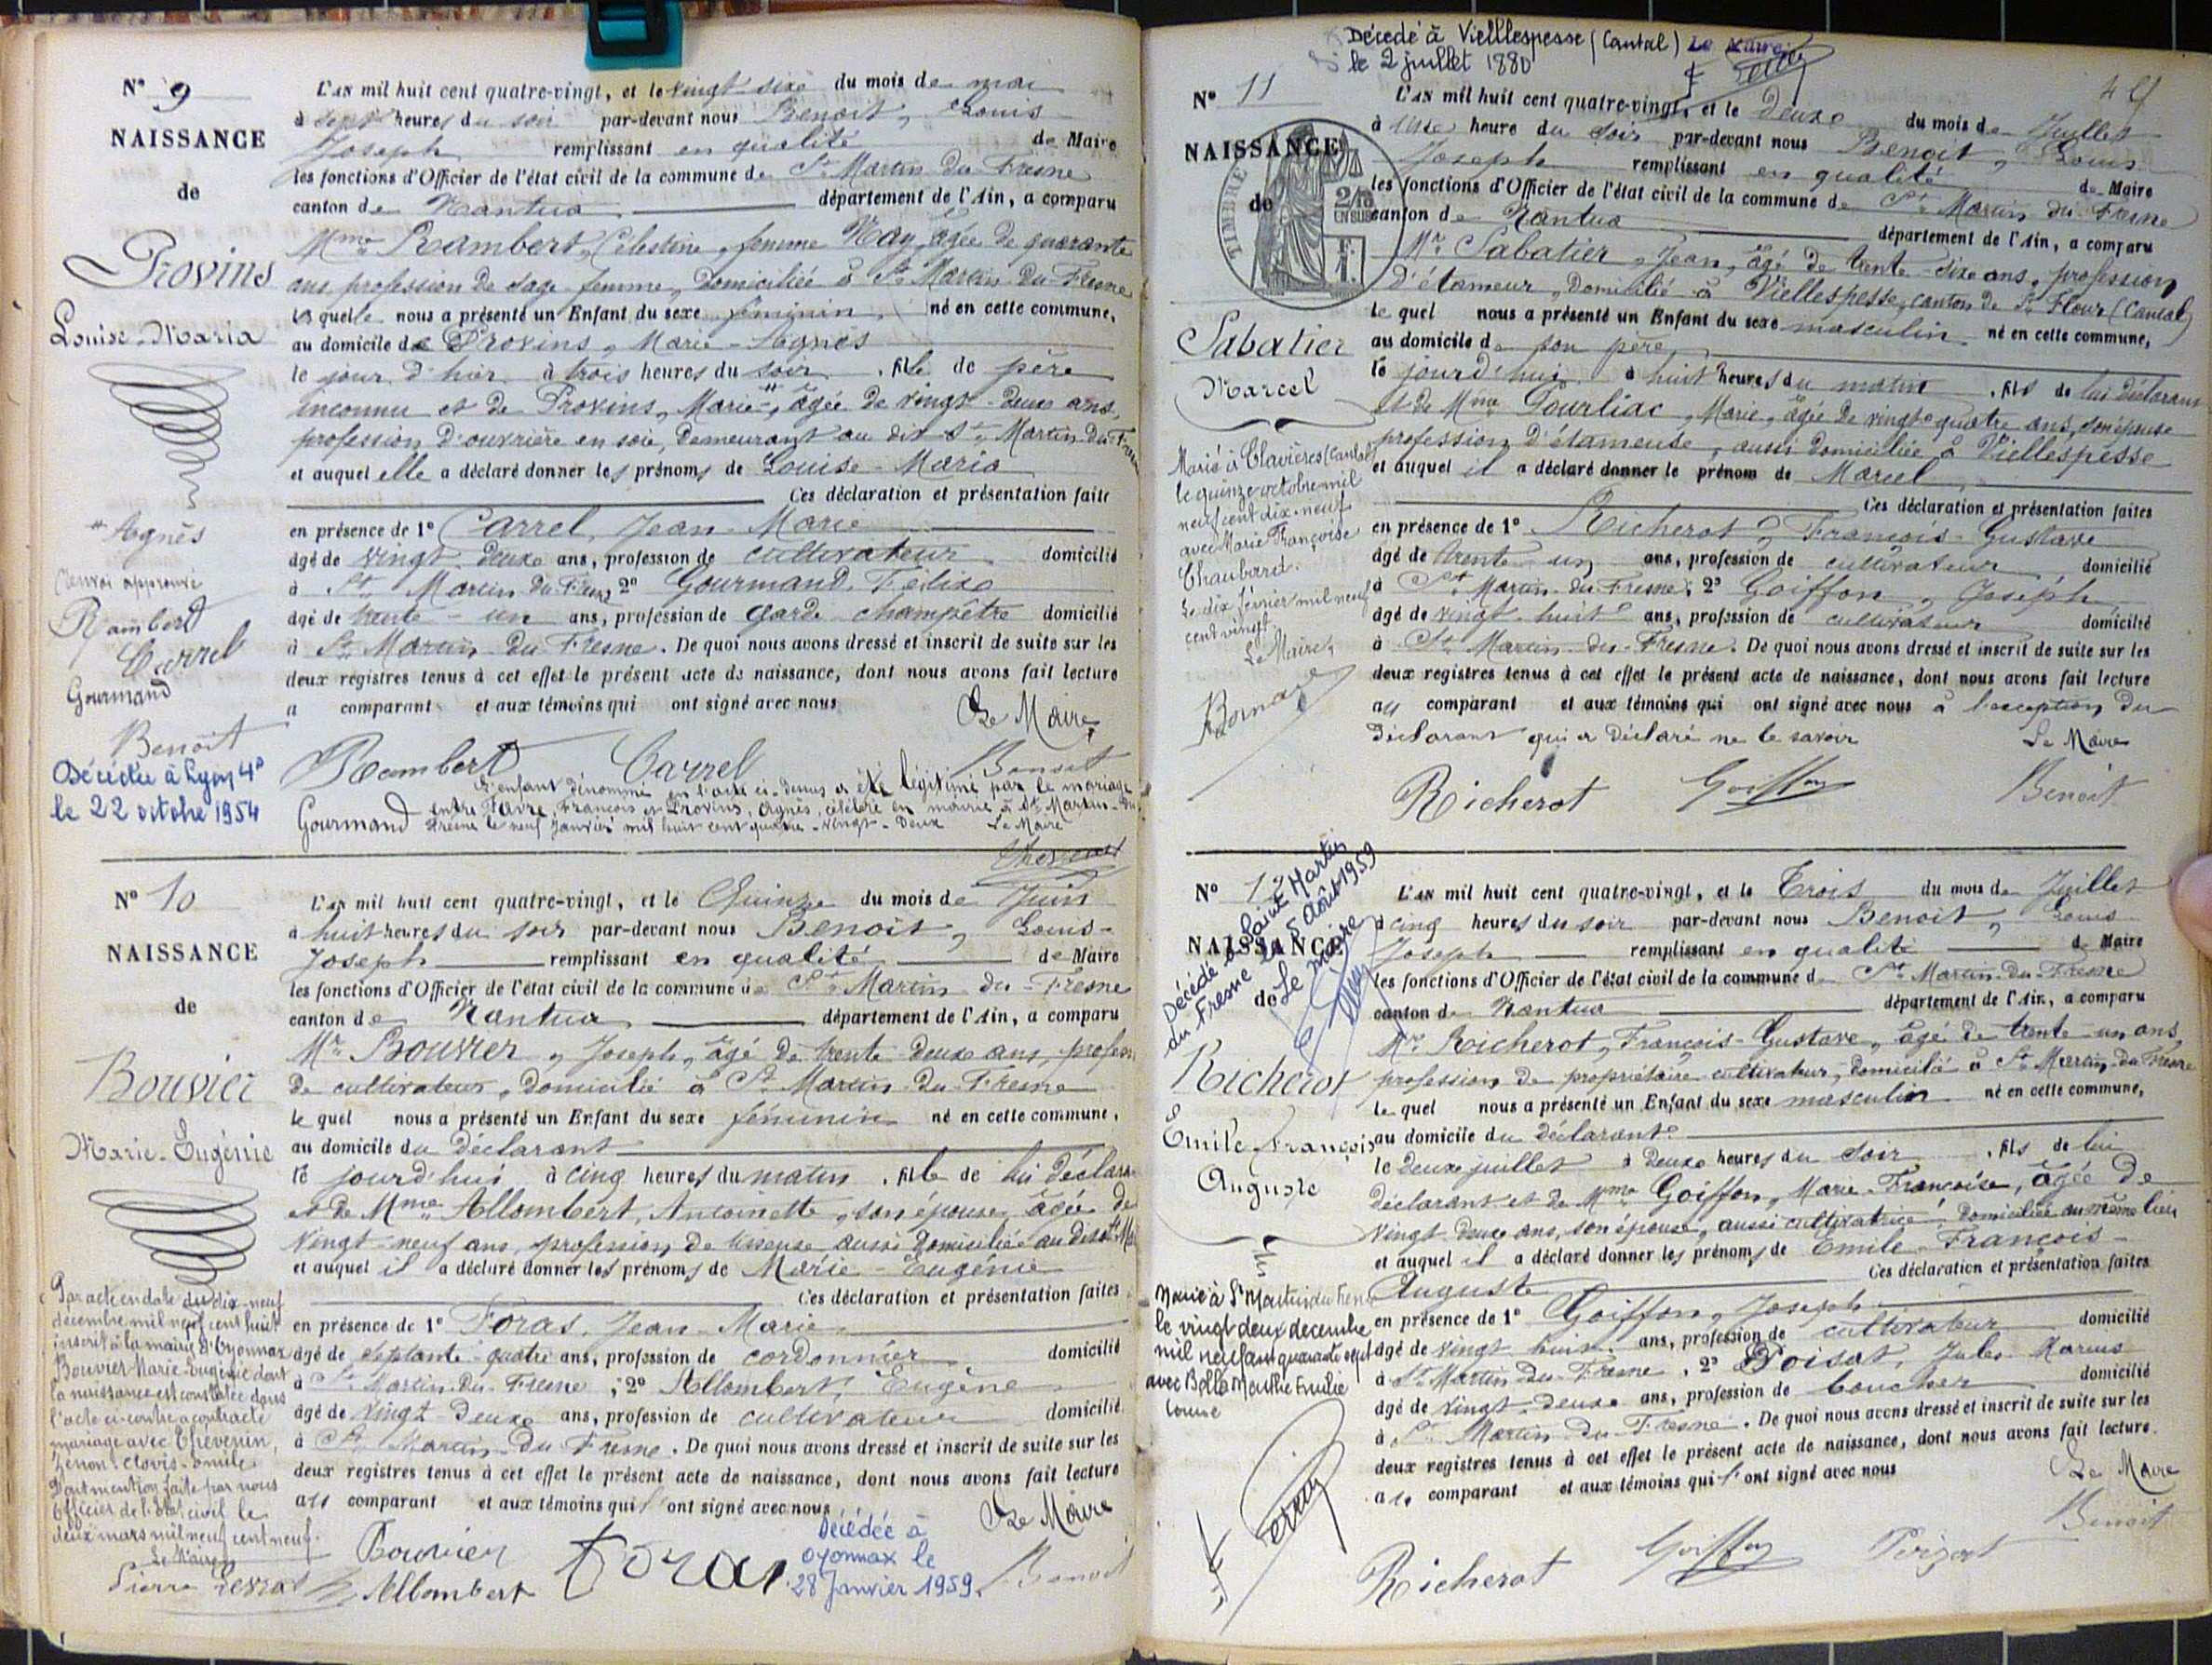 N° 9
NAISSANCE
de
Provins
Louise-Maria
L'AN mil huit cent quatre-vingt, et le vingt sixe du mois de mai
à sept heures du soir par-devant nous Benoit, Louis
Joseph remplissant en qualité de Maire
les fonctions d'Officier de l'état civil de la commune de St Martin du Fresne
canton de Nantua département de l'Ain, a comparu
Mme Rambert, Célestine, femme Nay, âgée de quarante
ans, profession de sage femme, domiciliée à St Martin du Fresne
laquelle nous a présenté un Enfant du sexe féminin né en cette commune,
au domicile de Provins, Marie-Agnès
le jour d'hier à trois heures du soir, fille de père
inconnu et de Provins, Marie-#, âgée de vingt-deux ans,
profession d'ouvrière en soie, demeurant au dit St Martin du Fresne
et auquel elle a déclaré donner les prénoms de Louise-Maria
Ces déclaration et présentation faite
en présence de 1° Carrel, Jean-Marie
âgé de vingt-deuxe ans, profession de cultivateur domicilié
à St Martin du Fresne 2° Gourmand, Félixe
âgé de trente-un ans, profession de garde champêtre domicilié
à St Martin du Fresne. De quoi nous avons dressé et inscrit de suite sur les
deux registres tenus à cet effet le présent acte de naissance, dont nous avons fait lecture
a comparant et aux témoins qui ont signé avec nous
Le Maire
Rambert Carrel Benoit
Gourmand
L'enfant dénommé en l'acte ci-dessus a été légitimé par le mariage
entre Favre, François et Provins, Agnès, célébré en mairie à St Martin-du
Fresne le neuf Janvier mil huit cent quatre-vingt-deux Le Maire
# Agnès
renvoi approuvé
Rambert
Carrel
Gourmand
Benoit
Décédée à Lyon 4e
le 22 octobre 1954
N° 10
NAISSANCE
de
Bouvier
Marie-Eugénie
L'AN mil huit cent quatre-vingt, et le Quinze du mois de Juin
à huit heures du soir par-devant nous Benoit, Louis-
Joseph remplissant en qualité de Maire
les fonctions d'Officier de l'état civil de la commune de St Martin-du-Fresne
canton de Nantua département de l'Ain, a comparu
Mr Bouvier, Joseph, âgé de trente-deuxe ans, profession
de cultivateur, domicilié à St Martin du Fresne
lequel nous a présenté un Enfant du sexe féminin né en cette commune,
au domicile du déclarant
le jourd'hui à cinq heures du matin, fille de lui déclarant
et de Mme Allombert, Antoinette, son épouse, âgée de
vingt-neuf ans, profession de tisseuse aussi domiciliée au dit St
et auquel il a déclaré donner les prénoms de Marie-Eugénie
Ces déclaration et présentation faites
en présence de 1° Foras, Jean-Marie
âgé de septante-quatre ans, profession de cordonnier domicilié
à St Martin-du-Fresne ; 2° Allombert, Eugène
âgé de vingt-deuxe ans, profession de cultivateur domicilié
à St Martin-du-Fresne. De quoi nous avons dressé et inscrit de suite sur les
deux registres tenus à cet effet le présent acte de naissance, dont nous avons fait lecture
au comparant et aux témoins qui ont signé avec nous
Le Maire
Bouvier Foras Benoit
Allombert
Décédée à
Oyonnax le
28 Janvier 1959.
Par acte en date du dix-neuf
décembre mil neuf cent huit
inscrit à la mairie d'Oyonnax
Bouvier Marie-Eugénie dont
la naissance est constatée dans
l'acte ci-contre a contracté
mariage avec Thévenin,
Zénon-Clovis-Emile
Dont mention faite par nous
Officier de l'état civil le
deux mars mil neuf cent neuf.
Le Maire
Décédé à Viellespesse (Cantal) Le Maire
le 2 juillet 1880
N° 11
NAISSANCE
de
TIMBRE
2/10
EN SUS
F.
Sabatier
Marcel
L'AN mil huit cent quatre-vingt, et le deuxe du mois de Juillet
à une heure du soir par-devant nous Benoit, Louis
Joseph remplissant en qualité de Maire
les fonctions d'Officier de l'état civil de la commune de St Martin du Fresne
canton de Nantua département de l'Ain, a comparu
Mr Sabatier, Jean, âgé de trente-sixe ans, profession
d'étameur, domicilié à Viellespesse, canton de St Flour (Cantal)
lequel nous a présenté un Enfant du sexe masculin né en cette commune,
au domicile de son père
le jourd'hui à huit heures du matin, fils de lui déclarant
et de Mme Tourliac, Marie, âgée de vingt-quatre ans, son épouse
profession d'étameuse, aussi domiciliée à Viellespesse
et auquel il a déclaré donner le prénom de Marcel
Ces déclaration et présentation faites
en présence de 1° Richerot, François-Gustave
âgé de trente un ans, profession de cultivateur domicilié
à St Martin-du-Fresne ; 2° Goiffon, Joseph
âgé de vingt-huit ans, profession de cultivateur domicilié
à St Martin-du-Fresne. De quoi nous avons dressé et inscrit de suite sur les
deux registres tenus à cet effet le présent acte de naissance, dont nous avons fait lecture
au comparant et aux témoins qui ont signé avec nous à l'exception du
déclarant qui a déclaré ne le savoir Le Maire
Richerot Goiffon Benoit
Marié à Clavières (Cantal)
le quinze octobre mil
neuf cent dix-neuf
avec Marie Françoise
Chaubard.
Le dix février mil neuf
cent vingt.
Le Maire,
N° 12
NAISSANCE
de
Décédé à Saint Martin
du Fresne le 5 Août 1959
Le Maire
Richerot
Emile François
Auguste
L'AN mil huit cent quatre-vingt, et le Trois du mois de Juillet
à cinq heures du soir par-devant nous Benoit, Louis
Joseph remplissant en qualité de Maire
les fonctions d'Officier de l'état civil de la commune de St Martin-du-Fresne
canton de Nantua département de l'Ain, a comparu
Mr Richerot, François-Gustave, âgé de trente un ans,
profession de propriétaire cultivateur, domicilié à St Martin-du-Fresne
lequel nous a présenté un Enfant du sexe masculin né en cette commune,
au domicile du déclarant
le deuxe juillet à deuxe heures du soir, fils de lui
déclarant et de Mme Goiffon, Marie-Françoise, âgée de
vingt-deuxe ans, son épouse, aussi cultivatrice, domiciliée au même lieu
et auquel il a déclaré donner les prénoms de Emile-François-
Auguste Ces déclaration et présentation faites
en présence de 1° Goiffon, Joseph
âgé de vingt huit ans, profession de cultivateur domicilié
à St Martin-du-Fresne, 2° Poisat, Jules-Marius
âgé de vingt-deuxe ans, profession de boucher domicilié
à St Martin-du-Fresne. De quoi nous avons dressé et inscrit de suite sur les
deux registres tenus à cet effet le présent acte de naissance, dont nous avons fait lecture
au comparant et aux témoins qui ont signé avec nous
Le Maire
Richerot Goiffon Benoit
Marié à St Martin du Fresne
le vingt deux décembre
mil neuf cent quarante sept
avec Bolla Marthe Emilie
Louise